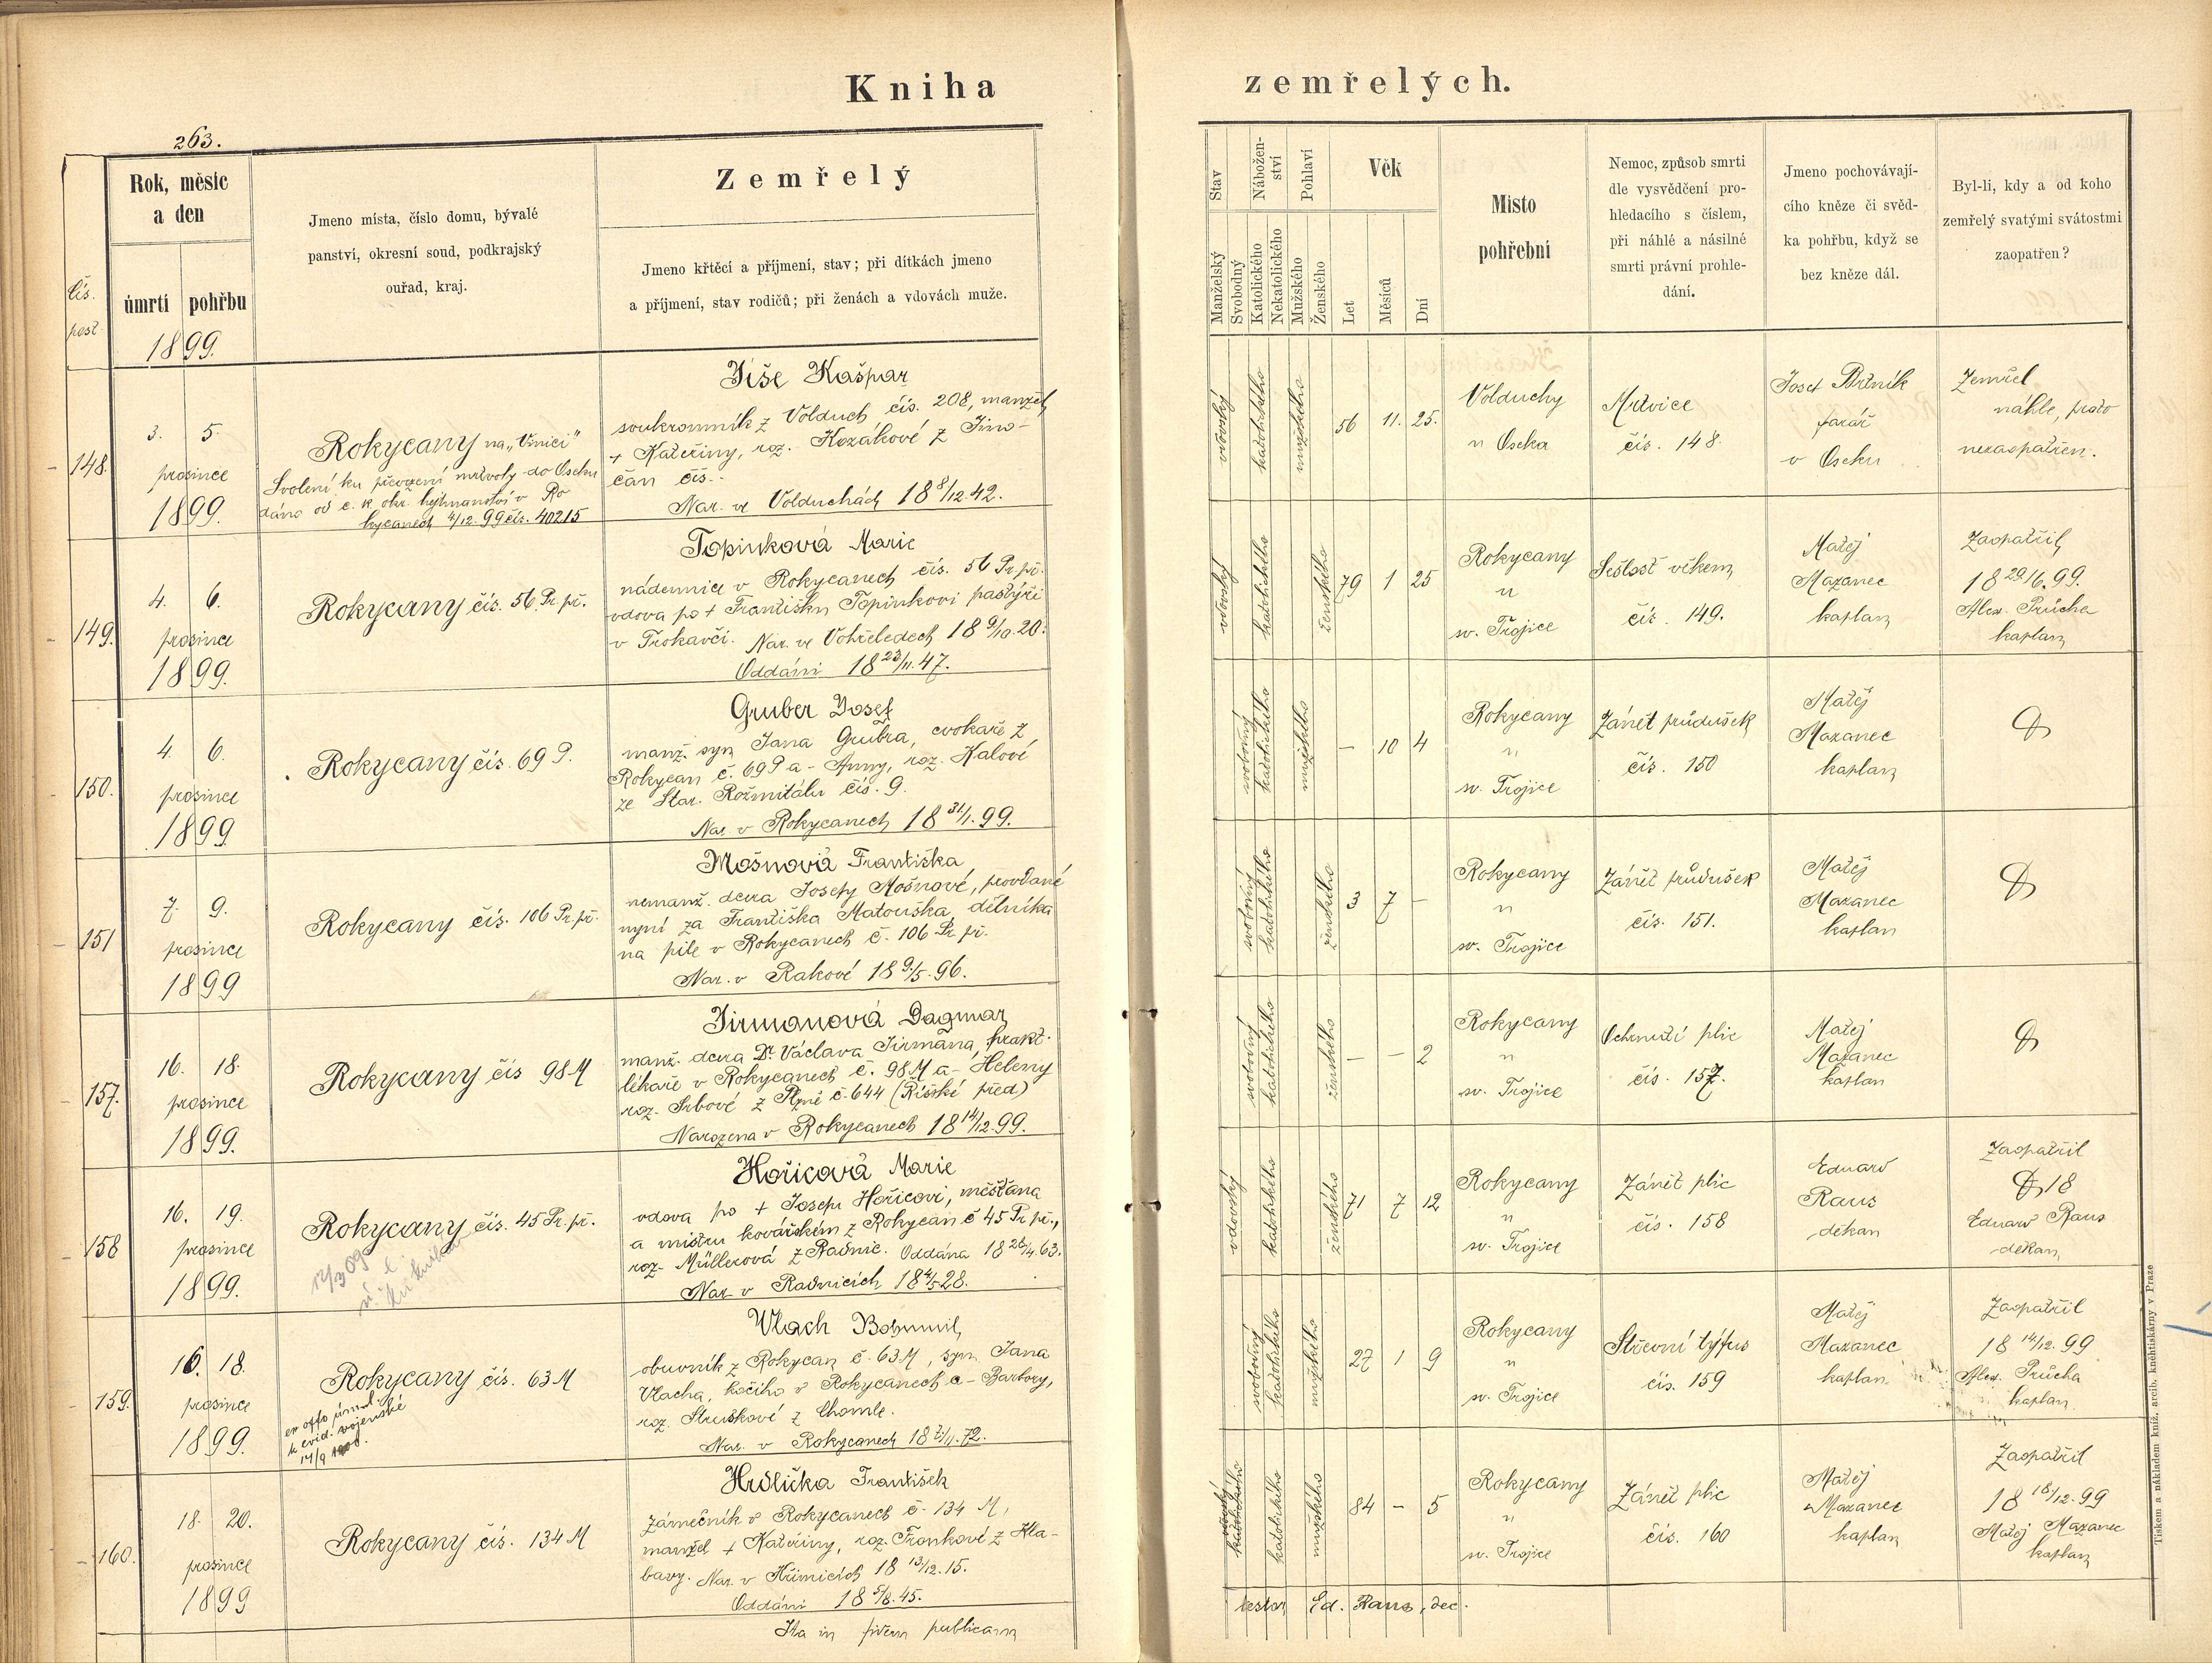 Kniha
zemřelých.
263.
čís.
post
Rok, měsíc
a den
úmrtí
pohřbu
1899.
Jmeno místa, číslo domu, bývalé
panství, okresní soud, podkrajský
ouřad, kraj.
Zemřelý
Jmeno křtěcí a příjmení, stav; při dítkách jmeno
a příjmení, stav rodičů; při ženách a vdovách muže.
Stav
Manželský
Svobodný
Nábožen-
ství
Katolického
Nekatolického
Pohlaví
Mužského
Ženského
Věk
Let
Měsíců
Dní
Místo
pohřební
Nemoc, způsob smrti
dle vysvědčení pro-
hledacího s číslem,
při náhlé a násilné
smrti právní prohle-
dání.
Jmeno pochovávají-
cího kněze či svěd-
ka pohřbu, když se
bez kněze dál.
Byl-li, kdy a od koho
zemřelý svatými svátostmi
zaopatřen?
148.
3. 5.
prosince
1899.
Rokycany na „Vinici"
Svolení ku převezení mrtvoly do Oseku
dáno od c. k. okr. hejtmanství v Ro
kycanech 4/12. 99 čís. 40215
Jíše Kašpar
soukromník z Volduch čís. 208, manžel
+ Kateřiny, roz. Kozákové z
čan čís. -
Nar. ve Volduchách 18 8/12. 42.
vdovský
katolického
mužského
56 11. 25.
Volduchy
u Oseka
Mrtvice
čís. 148.
Josef
farář
v Oseku
Zemřel
náhle, proto
nezaopatřen.
149.
4. 6.
prosince
1899.
Rokycany čís. 56 Pr. př.
Topinková Marie
nádennice v Rokycanech čís. 56 Pr. př.
vdova po + Františku Topinkovi pastýři
v Trokavči. Nar. ve Vohřeledech 18 9/10. 20.
Oddáni 18 23/11. 47.
vdovský
katolického
ženského
79 1 25
Rokycany
u
sv. Trojice
Sešlost věkem
čís. 149.
Matěj
Mazanec
kaplan
Zaopatřil
18 29/6. 99.
Alex. Průcha
kaplan
150.
4. 6.
prosince
1899.
Rokycany čís. 69 P.
Gruber Josef
manž. syn Jana Grubra, cvokaře z
Rokycan č. 69 P a - Anny, roz. Kalové
ze Star. Rožmitálu čís. 9.
Nar. v Rokycanech 18 31/1. 99.
svobodný
katolického
mužského
- 10 4
Rokycany
u
sv. Trojice
Zánět průdušek
čís. 150
Matěj
Mazanec
kaplan
151
7. 9.
prosince
1899
Rokycany čís. 106 Pr. př.
Mošnová Františka
nemanž. dcera Josefy Mošnové, provdané
nyní za Františka Matouška, dělníka
na pile v Rokycanech č. 106 Pr. př.
Nar. v Rakové 18 9/5. 96.
svobodný
katolického
ženského
3 7 -
Rokycany
u
sv. Trojice
Zánět průdušek
čís. 151.
Matěj
Mazanec
kaplan
157.
16. 18.
prosince
1899.
Rokycany čís 98 M
Jirmanová Dagmar
manž. dcera Dr. Václava Jirmana, prakt.
lékaře v Rokycanech č. 98 M a - Heleny
roz. Srbové z Plzně č. 644 (Říšské před)
Narozena v Rokycanech 18 14/12. 99.
svobodný
katolického
ženského
- - 2
Rokycany
u
sv. Trojice
Ochrnutí plic
čís. 157.
Matěj
Mazanec
kaplan
158
16. 19.
prosince
1899.
Rokycany čís. 45 Pr. př.
12/3 09
Hořicová Marie
vdova po + Josefu Hořicovi, měšťana
a mistru kovářském z Rokycan č 45 Pr. př.,
roz. Müllerová z Radnic. Oddána 18 26/4. 63.
Nar. v Radnicích 18 4/5 28.
vdovský
katolického
ženského
71 7 12
Rokycany
u
sv. Trojice
Zánět plic
čís. 158
Eduard
Raus
děkan
Zaopatřil
18
Eduard Raus
děkan
159.
16. 18.
prosince
1899.
Rokycany čís. 63 M
ex offo úmrtl.
k evid. vojenské
14/9
Vlach Bohumil
obuvník z Rokycan č. 63 M, syn Jana
Vlacha, kočího v Rokycanech a - Barbory,
roz. Struskové z Chomle.
Nar. v Rokycanech 18 7/11. 72.
svobodný
katolického
mužského
27 1 9
Rokycany
u
sv. Trojice
Střevní týfus
čís. 159
Matěj
Mazanec
kaplan
Zaopatřil
18 14/12. 99
Alex. Průcha
kaplan
160.
18. 20.
prosince
1899
Rokycany čís. 134 M
Hrdlička František
zámečník v Rokycanech č. 134 M,
manžel + Kateřiny, roz. Frankové z Hla-
bavy. Nar. v Hřimicích 18 13/12. 15.
Oddáni 18 5/8. 45.
vdovský
katolického
mužského
84 - 5
Rokycany
u
sv. Trojice
Zánět plic
čís. 160
Matěj
Mazanec
kaplan
Zaopatřil
18 18/12. 99
Matěj Mazanec
kaplan
Ita in fidem publicam
testor Ed. Raus, dec.
Tiskem a nákladem kníž. arcib. knihtiskárny v Praze